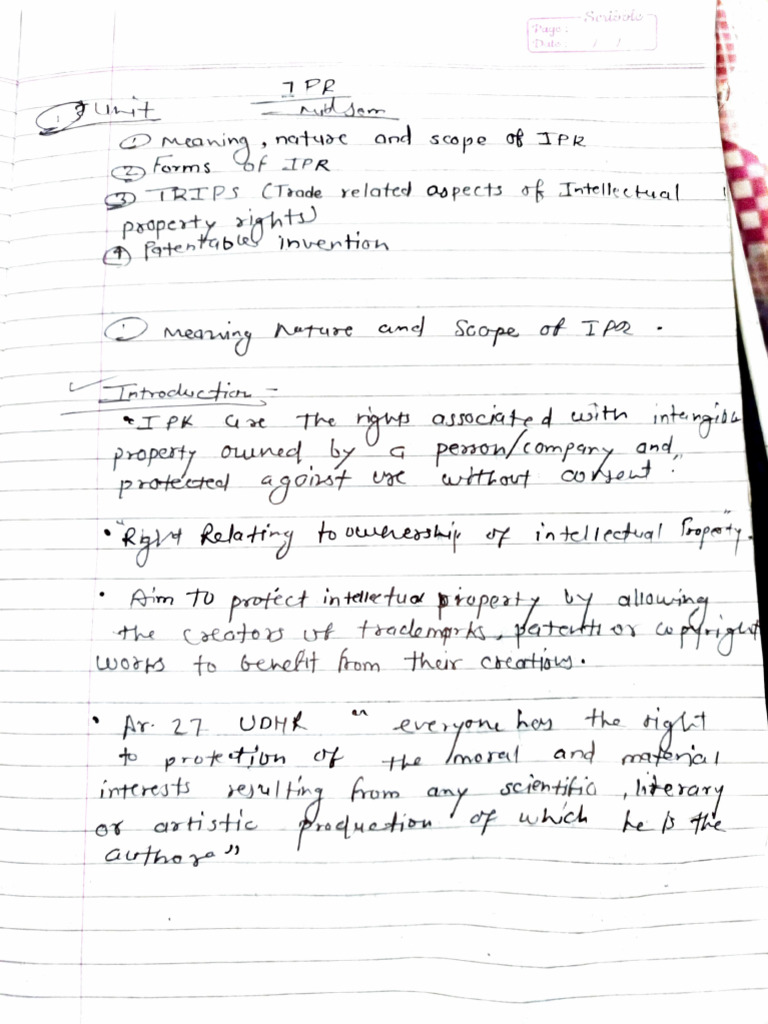 Scribols
Page:
Date: / /
IPR
① Unit Mid sem
① Meaning, nature and scope of IPR
② Forms of IPR
③ TRIPS (Trade related aspects of Intellectual
property rights)
④ Patentables invention
① Meaning Nature and Scope of IPR.
Introduction -
• IPR are The rights associated with intangible
property owned by a person/company and
protected against use without consent.
• "Right Relating to ownership of intellectual Property".
• Aim To protect intellectual property by allowing
the creators of trademarks, patents or copyright
works to benefit from their creations.
• Ar. 27 UDHR "everyone has the right
to protection of the moral and material
interests resulting from any scientific, literary
or artistic production of which he is the
author."